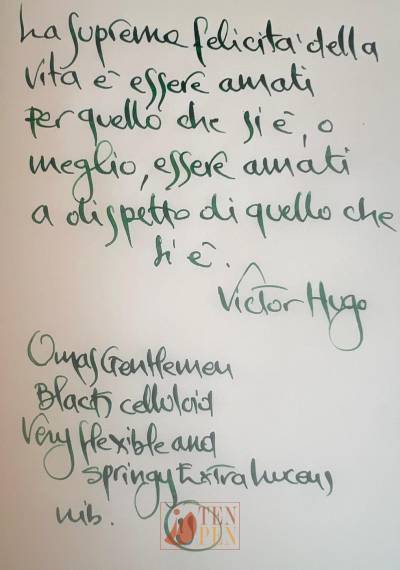 La suprema felicità della
vita è essere amati
per quello che si è, o
meglio, essere amati
a dispetto di quello che
si è.
Victor Hugo
Omas Gentlemen
Black celluloid
Very flexible and
springy Extra lucens
nib.
TEN
PEN